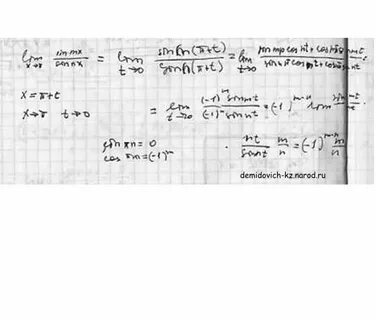 lim x→π sin mx / sin nx = lim t→0 sin m(π+t) / sin n(π+t) = lim t→0 sin πm cos mt + cos πm sin mt / sin πn cos nt + cos πn sin nt
x = π+t
x→π t→0
= lim t→0 (-1)^m sin mt / (-1)^n sin nt = (-1)^(m-n) lim sin mt / mt ·
sin πn = 0
cos πm = (-1)^m
· nt / sin nt · m/n = (-1)^(m-n) m/n
demidovich-kz.narod.ru